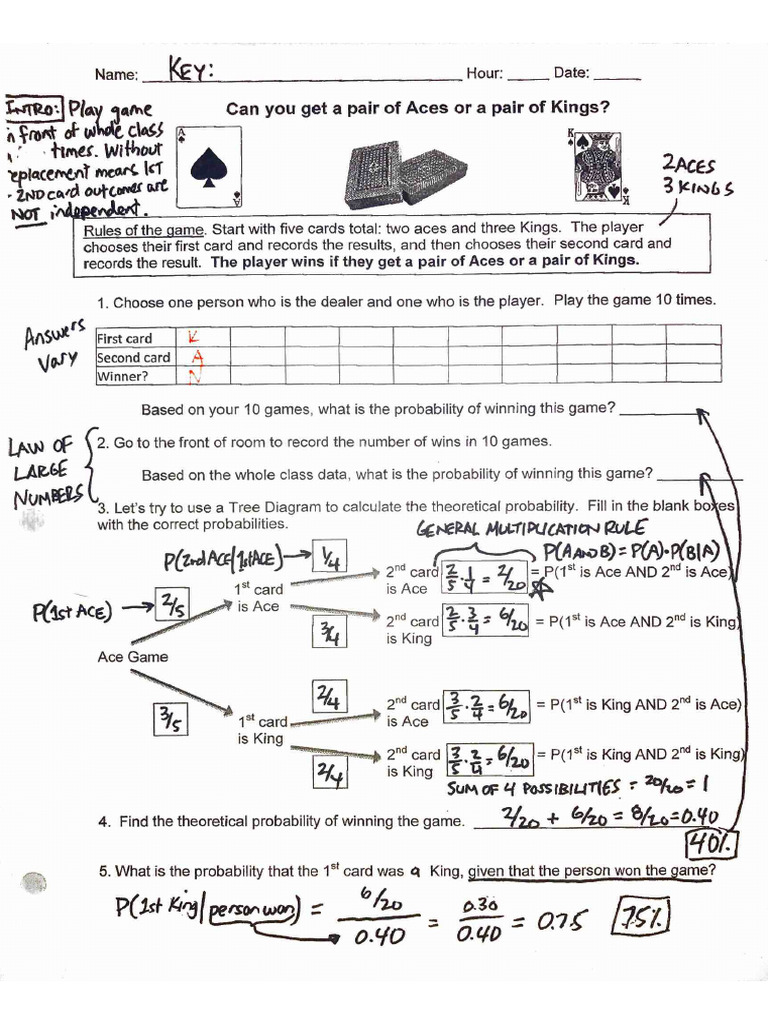 Name: KEY: Hour: Date:
INTRO: Play game
n front of whole class
times. Without
replacement means 1ST
2ND card outcomes are
NOT independent.
Can you get a pair of Aces or a pair of Kings?
A
A
K
K
2 ACES
3 KINGS
Rules of the game. Start with five cards total: two aces and three Kings. The player
chooses their first card and records the results, and then chooses their second card and
records the result. The player wins if they get a pair of Aces or a pair of Kings.
1. Choose one person who is the dealer and one who is the player. Play the game 10 times.
Answers
Vary
First card K
Second card A
Winner? N
Based on your 10 games, what is the probability of winning this game?
LAW OF
LARGE
NUMBERS
2. Go to the front of room to record the number of wins in 10 games.
Based on the whole class data, what is the probability of winning this game?
3. Let's try to use a Tree Diagram to calculate the theoretical probability. Fill in the blank boxes
with the correct probabilities.
GENERAL MULTIPLICATION RULE
P(A AND B) = P(A)·P(B|A)
P(2nd ACE|1st ACE) 1/4
2nd card 2/5 · 1/4 = 2/20 = P(1st is Ace AND 2nd is Ace)
is Ace
P(1st ACE) 2/5
1st card
is Ace
3/4
2nd card 2/5 · 3/4 = 6/20 = P(1st is Ace AND 2nd is King)
is King
Ace Game
3/5
1st card
is King
2/4
2nd card 3/5 · 2/4 = 6/20 = P(1st is King AND 2nd is Ace)
is Ace
2/4
2nd card 3/5 · 2/4 = 6/20 = P(1st is King AND 2nd is King)
is King
SUM OF 4 POSSIBILITIES = 20/20 = 1
4. Find the theoretical probability of winning the game. 2/20 + 6/20 = 8/20 = 0.40
40%
5. What is the probability that the 1st card was a King, given that the person won the game?
P(1st King|person won) = 6/20 / 0.40 = 0.30 / 0.40 = 0.75 75%